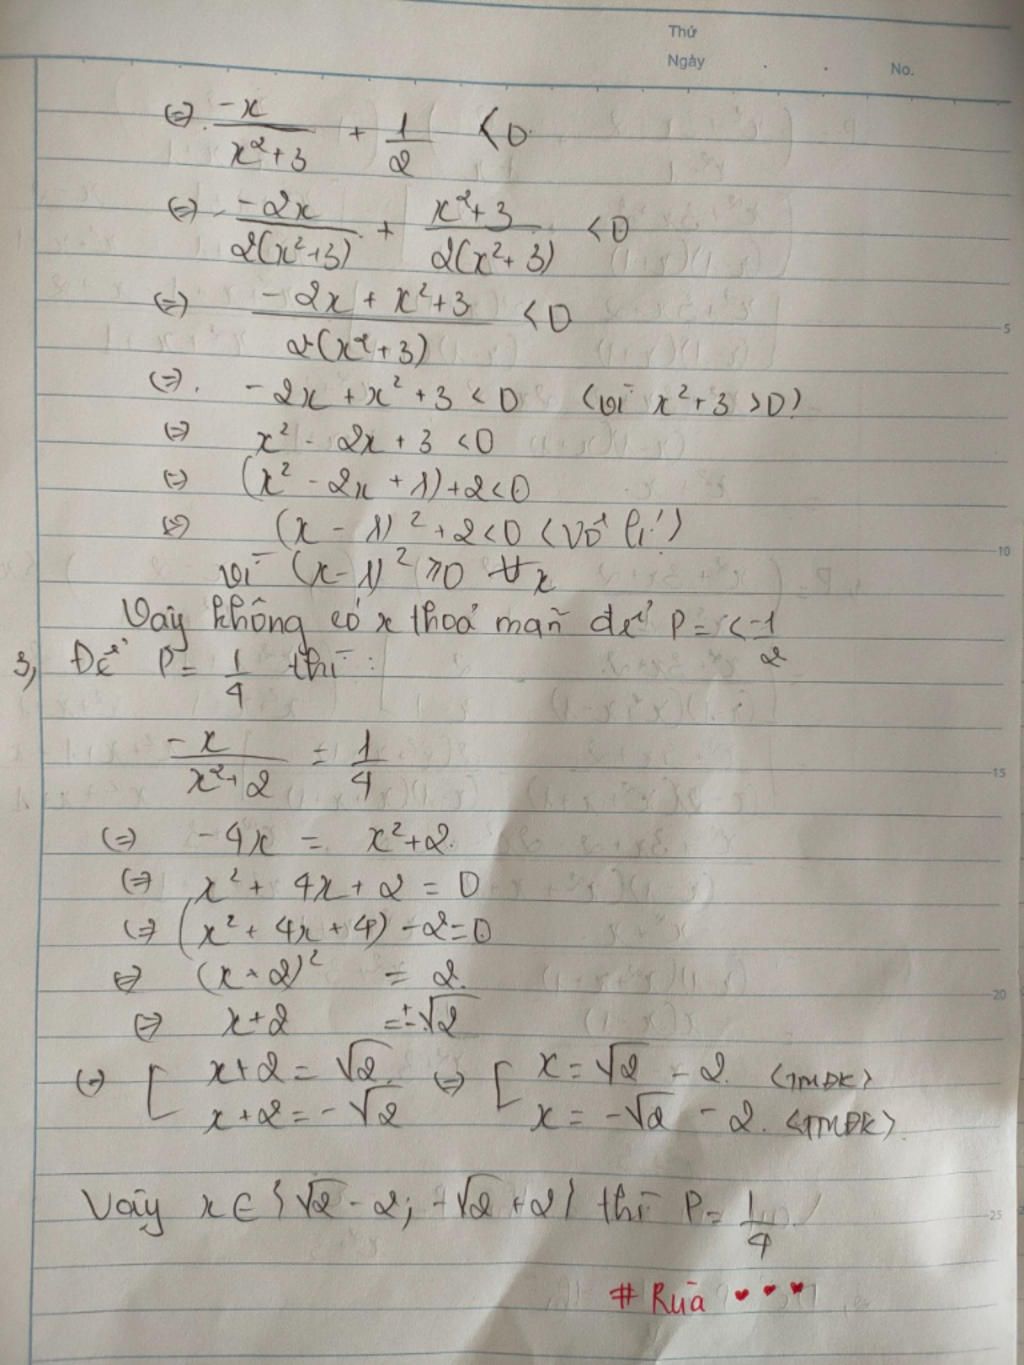 Thứ
Ngày . . No.
(=) -x/(x²+3) + 1/2 < 0
(=) -2x/2(x²+3) + (x²+3)/2(x²+3) < 0
(=) (-2x + x²+3)/2(x²+3) < 0
5
(=). -2x + x² + 3 < 0 (vì x²+3 > 0)
(=) x² - 2x + 3 < 0
(=) (x² - 2x + 1) + 2 < 0
(=) (x - 1)² + 2 < 0 (Vô lí)
10
vì (x-1)² ≥ 0 ∀x
Vậy không có x thoả mãn để P = < -1/2
3, Để P = 1/4 thì :
-x/(x²+2) = 1/4
15
(=) -4x = x²+2.
(=) x² + 4x + 2 = 0
(=) (x² + 4x + 4) - 2 = 0
(=) (x+2)² = 2.
20
(=) x+2 = ±√2
(=) [ x+2 = √2 (=) [ x = √2 - 2. (TMĐK)
x+2 = -√2 x = -√2 - 2. (TMĐK).
Vậy x ∈ {√2 - 2; -√2 + 2} thì P = 1/4.
25
# Rùa ♥ ♥ ♥